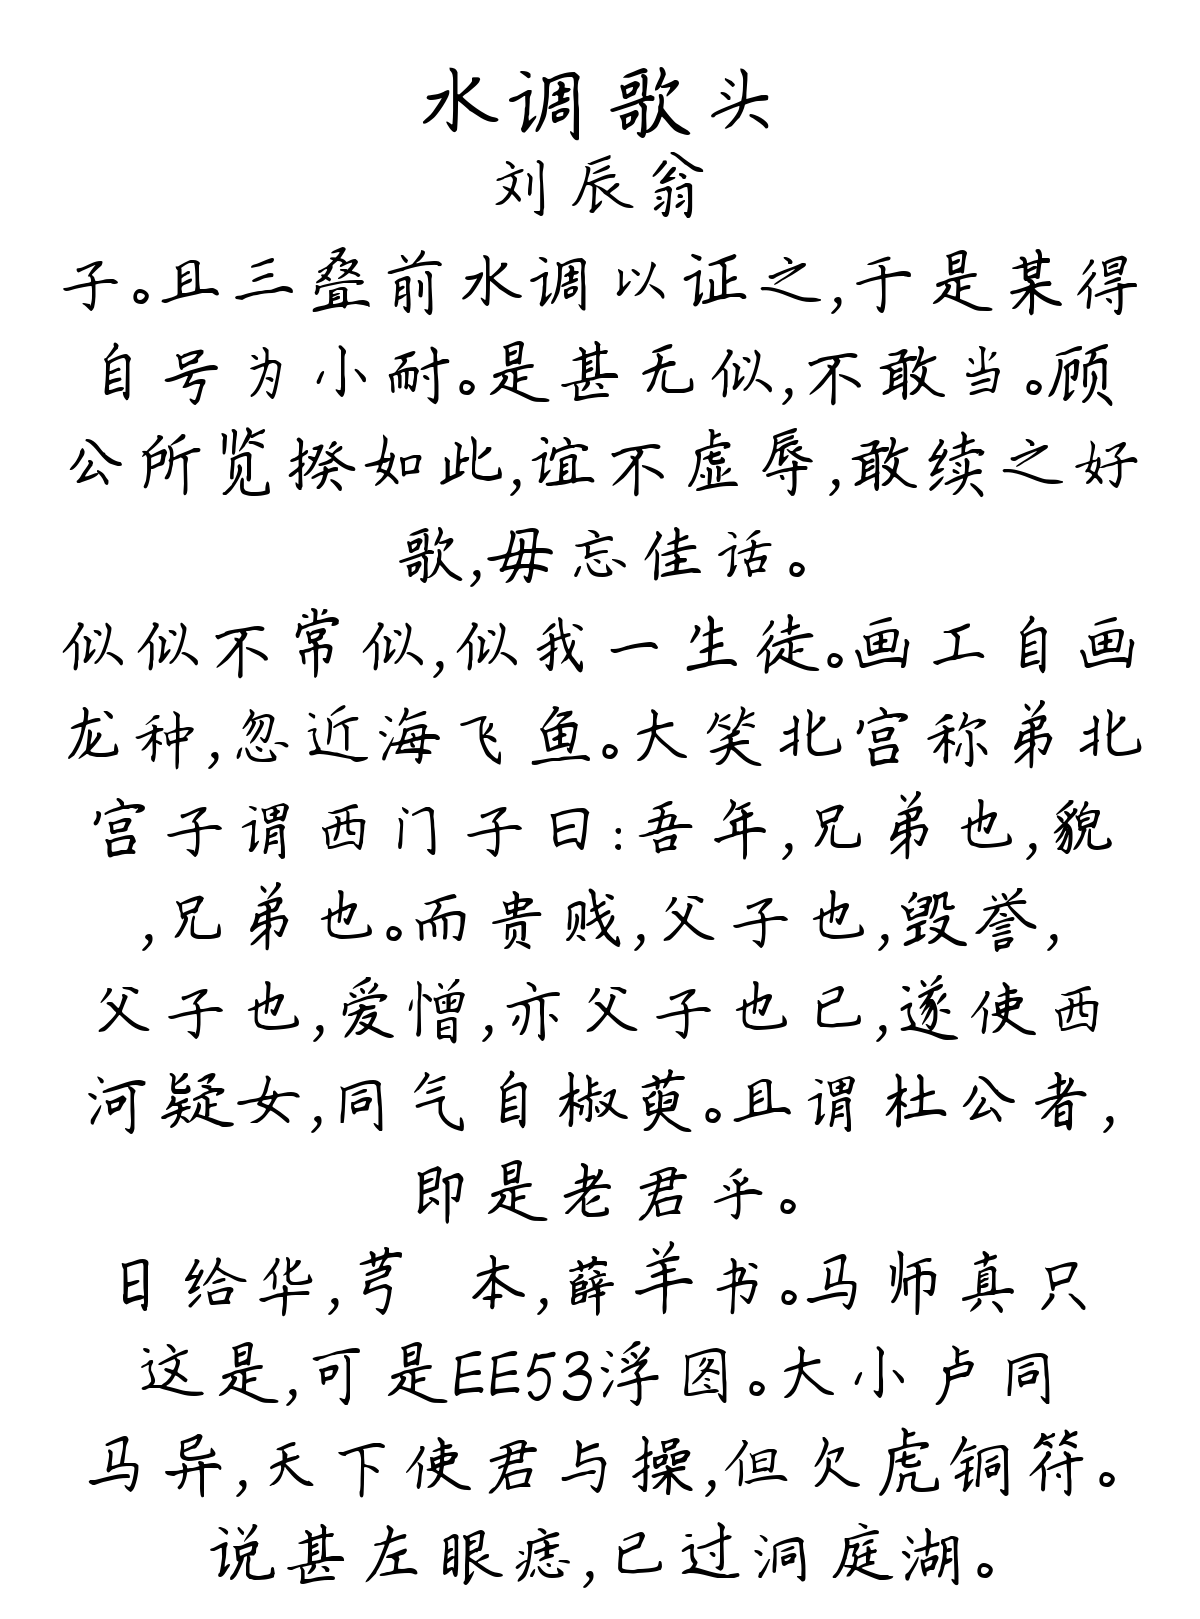 水调歌头
刘辰翁
子。且三叠前水调以证之,于是某得
自号为小耐。是甚无似,不敢当。顾
公所览揆如此,谊不虚辱,敢续之好
歌,毋忘佳话。
似似不常似,似我一生徒。画工自画
龙种,忽近海飞鱼。大笑北宫称弟北
宫子谓西门子曰:吾年,兄弟也,貌
,兄弟也。而贵贱,父子也,毁誉,
父子也,爱憎,亦父子也已,遂使西
河疑女,同气自椒萸。且谓杜公者,
即是老君乎。
日给华,芎 本,薛羊书。马师真只
这是,可是EE53浮图。大小卢同
马异,天下使君与操,但欠虎铜符。
说甚左眼痣,已过洞庭湖。